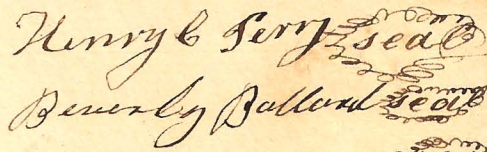 Henry C Perry seal
Beverly Ballard seal